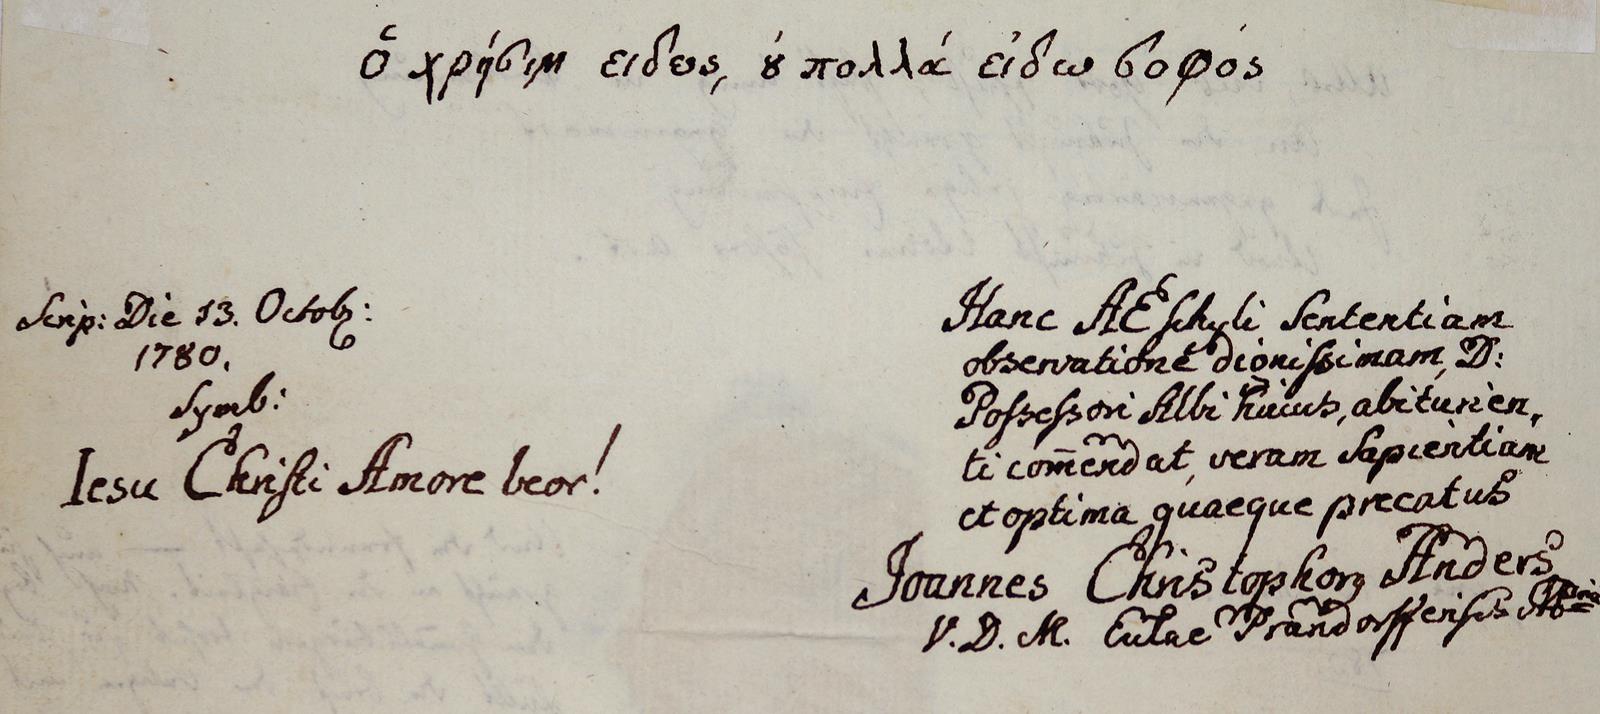 ὁ χρήσιμ ειδως, ȣ́ πολλά εἰδω σοφός
Scrip: Die 13. Octob:
1780.
Symb:
Iesu Christi Amore beor!
Hanc AEschyli Sententiam
observatione dignissimam, D:
Possessori Albi huius, abiturien,
ti com̄endat, veram Sapientiam
et optima quaeque precatus
Joannes Christophorꝰ Anders
V. D. M. Eccles